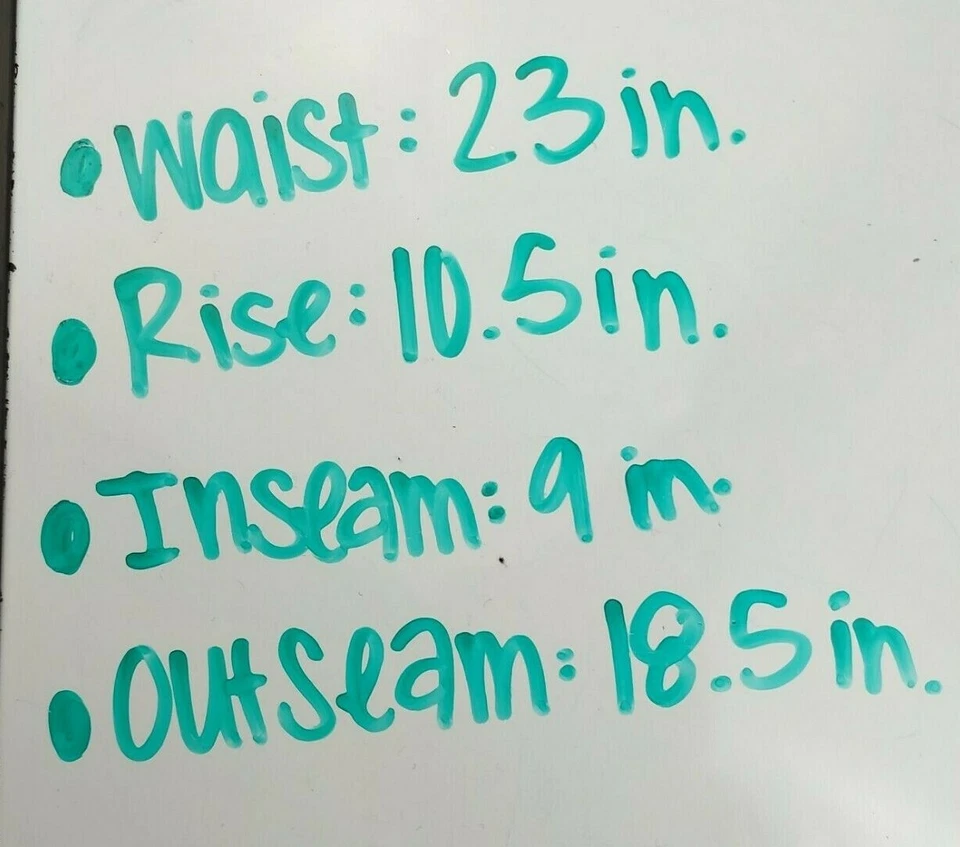 • Waist: 23 in.
• Rise: 10.5 in.
• Inseam: 9 in.
• Outseam: 18.5 in.